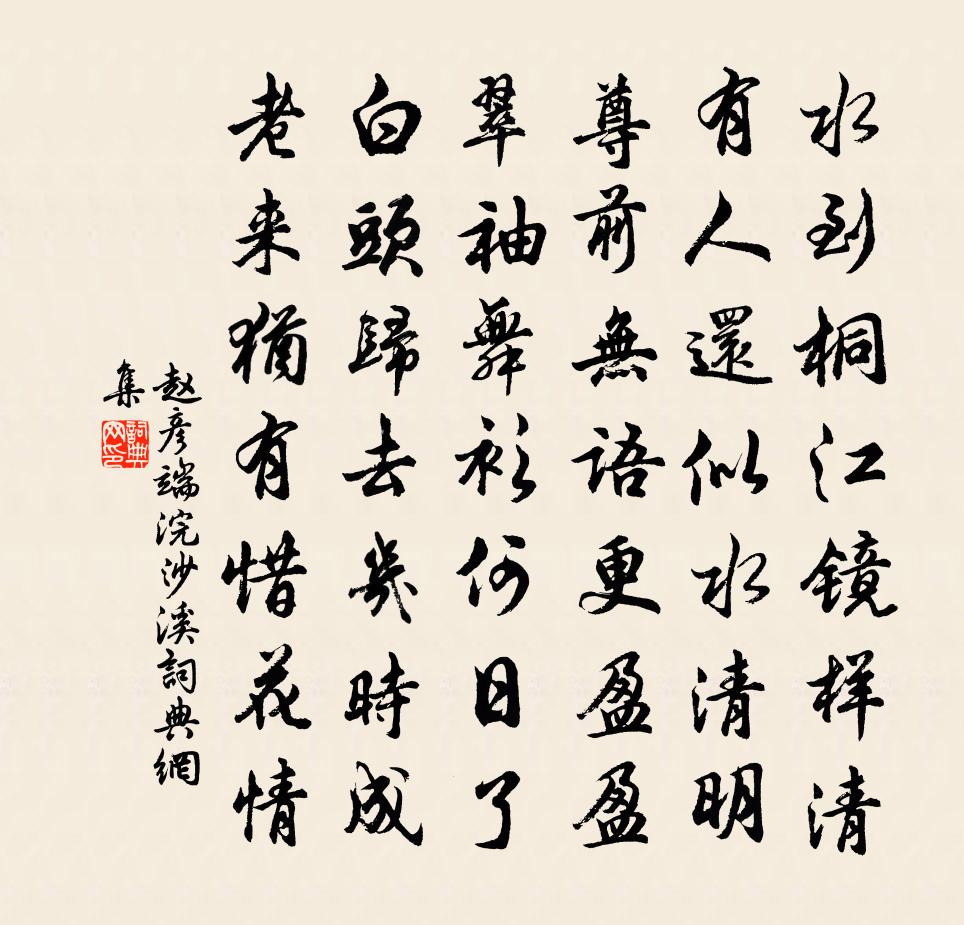 水到桐江镜样清
有人還似水清明
尊前無語更盈盈
翠袖舞衫何日了
白頭歸去幾時成
老来猶有惜花情
赵彦端浣沙溪詞典網
集
詞典网印